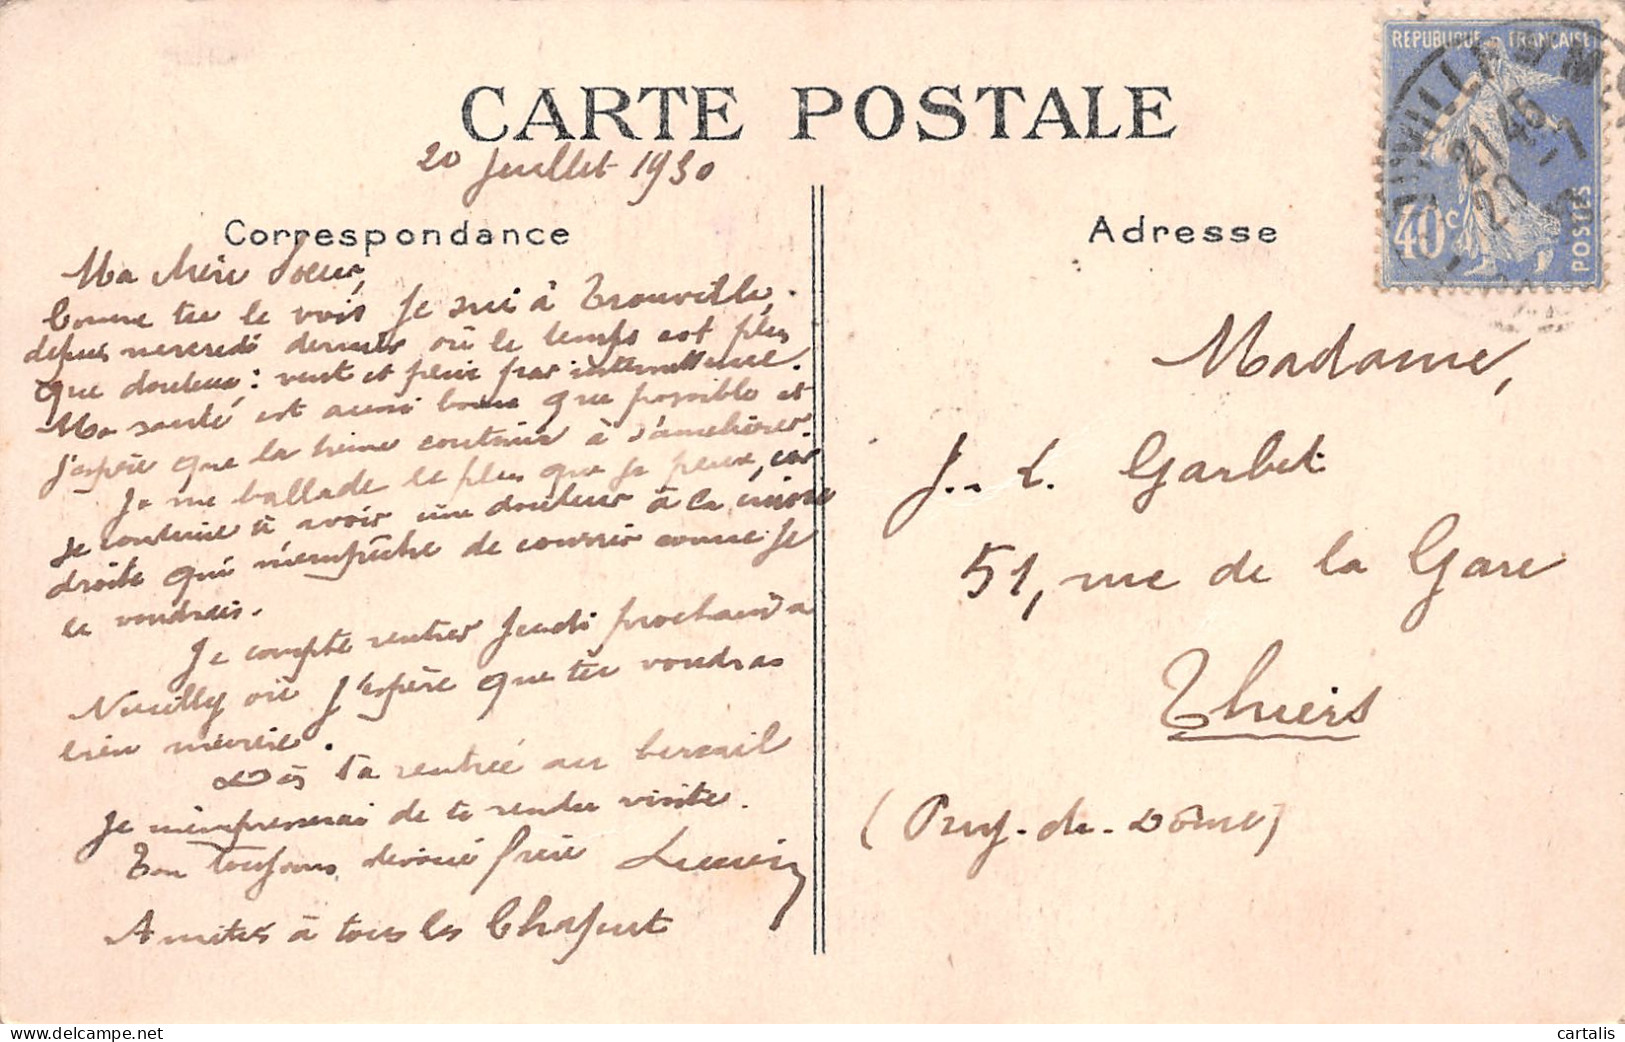 CARTE POSTALE
20 Juillet 1930
Correspondance
Adresse
REPUBLIQUE FRANÇAISE
40c
POSTES
21 45
20 -7
Ma chère Soeur,
Comme tu le vois je sui à Trouville,
depuis mercredi dernier où le temps est plus
que douteux : vent et pluie par intermittence.
Ma santé est aussi bonne que possible et
j'espère que la tienne continue à s'améliorer.
Je me ballade le plus que je peux, car
je continue à avoir une douleur à la cuisse
droite qui m'empêche de courrir comme je
le voudrais.
Je compte rentrer jeudi prochain à
Neuilly où j'espère que tu voudras
bien m'écrire.
Dès ta rentrée au bercail
je m'empresserai de te rendre visite.
Ton toujours dévoué frère Lucien
Amitiés à tous les Chaput
Madame,
J.-L. Garbet
51, rue de la Gare
Thiers
(Puy-de-Dôme)
cartalis